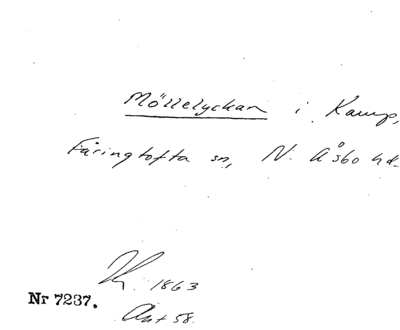 Möllelyckan i Kamp,
Färingtofta sn, N. Åsbo hd.
1863
Nr 7237.
Akt 58.